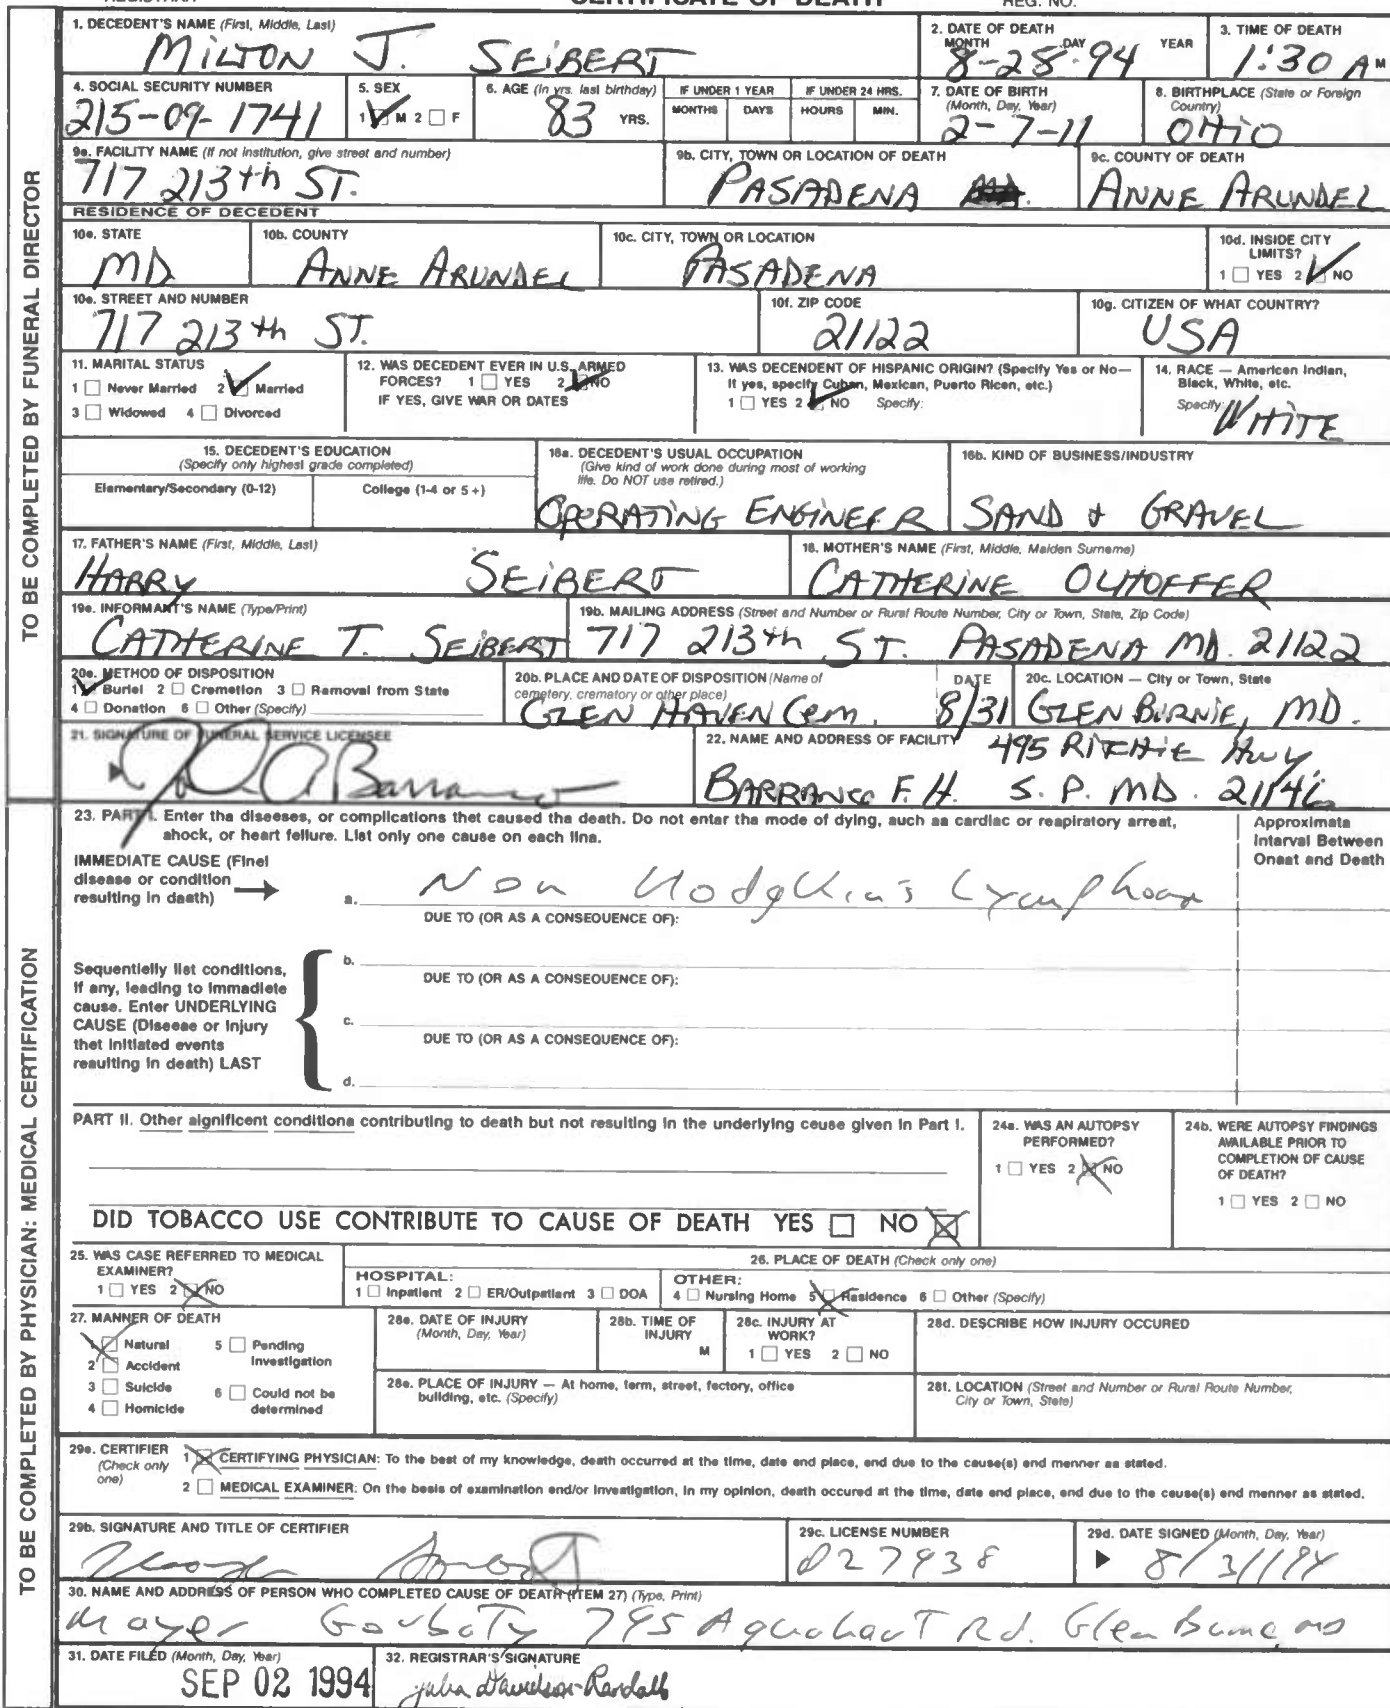 CERTIFICATE OF DEATH
REG. NO.
1. DECEDENT'S NAME (First, Middle, Last)
MILTON J. SEIBERT
2. DATE OF DEATH
MONTH DAY YEAR
8-28-94
3. TIME OF DEATH
1:30 A M
4. SOCIAL SECURITY NUMBER
215-09-1741
5. SEX
1 ☑ M 2 ☐ F
6. AGE (In yrs. last birthday)
83 YRS.
IF UNDER 1 YEAR
MONTHS DAYS
IF UNDER 24 HRS.
HOURS MIN.
7. DATE OF BIRTH
(Month, Day, Year)
2-7-11
8. BIRTHPLACE (State or Foreign
Country)
OHIO
9a. FACILITY NAME (If not institution, give street and number)
717 213th ST.
9b. CITY, TOWN OR LOCATION OF DEATH
PASADENA
9c. COUNTY OF DEATH
ANNE ARUNDEL
RESIDENCE OF DECEDENT
10a. STATE
MD
10b. COUNTY
ANNE ARUNDEL
10c. CITY, TOWN OR LOCATION
PASADENA
10d. INSIDE CITY
LIMITS?
1 ☐ YES 2 ☑ NO
10e. STREET AND NUMBER
717 213th ST.
10f. ZIP CODE
21122
10g. CITIZEN OF WHAT COUNTRY?
USA
11. MARITAL STATUS
1 ☐ Never Married 2 ☑ Married
3 ☐ Widowed 4 ☐ Divorced
12. WAS DECEDENT EVER IN U.S. ARMED
FORCES? 1 ☐ YES 2 ☑ NO
IF YES, GIVE WAR OR DATES
13. WAS DECENDENT OF HISPANIC ORIGIN? (Specify Yes or No—
If yes, specify Cuban, Mexican, Puerto Rican, etc.)
1 ☐ YES 2 ☑ NO Specify:
14. RACE — American Indian,
Black, White, etc.
Specify: WHITE
15. DECEDENT'S EDUCATION
(Specify only highest grade completed)
Elementary/Secondary (0-12) College (1-4 or 5+)
16a. DECEDENT'S USUAL OCCUPATION
(Give kind of work done during most of working
life. Do NOT use retired.)
OPERATING ENGINEER
16b. KIND OF BUSINESS/INDUSTRY
SAND & GRAVEL
17. FATHER'S NAME (First, Middle, Last)
HARRY SEIBERT
18. MOTHER'S NAME (First, Middle, Maiden Surname)
CATHERINE OLHOFFER
19a. INFORMANT'S NAME (Type/Print)
CATHERINE T. SEIBERT
19b. MAILING ADDRESS (Street and Number or Rural Route Number, City or Town, State, Zip Code)
717 213th ST. PASADENA MD. 21122
20a. METHOD OF DISPOSITION
1 ☑ Burial 2 ☐ Cremation 3 ☐ Removal from State
4 ☐ Donation 6 ☐ Other (Specify)
20b. PLACE AND DATE OF DISPOSITION (Name of
cemetery, crematory or other place)
GLEN HAVEN Cem.
DATE
8/31
20c. LOCATION — City or Town, State
GLEN BURNIE, MD.
21. SIGNATURE OF FUNERAL SERVICE LICENSEE
Barranco
22. NAME AND ADDRESS OF FACILITY
495 RITCHIE Hwy
BARRANCO F.H. S.P. MD. 21146
TO BE COMPLETED BY FUNERAL DIRECTOR
23. PART I. Enter the diseases, or complications that caused the death. Do not enter the mode of dying, such as cardiac or respiratory arrest,
shock, or heart failure. List only one cause on each line.
Approximate
Interval Between
Onset and Death
IMMEDIATE CAUSE (Final
disease or condition
resulting in death)
a. Non Hodgkin's Lymphoma
DUE TO (OR AS A CONSEQUENCE OF):
Sequentially list conditions,
if any, leading to immediate
cause. Enter UNDERLYING
CAUSE (Disease or injury
that initiated events
resulting in death) LAST
b.
DUE TO (OR AS A CONSEQUENCE OF):
c.
DUE TO (OR AS A CONSEQUENCE OF):
d.
PART II. Other significant conditions contributing to death but not resulting in the underlying cause given in Part I.
24a. WAS AN AUTOPSY
PERFORMED?
1 ☐ YES 2 ☒ NO
24b. WERE AUTOPSY FINDINGS
AVAILABLE PRIOR TO
COMPLETION OF CAUSE
OF DEATH?
1 ☐ YES 2 ☐ NO
DID TOBACCO USE CONTRIBUTE TO CAUSE OF DEATH YES ☐ NO ☒
25. WAS CASE REFERRED TO MEDICAL
EXAMINER?
1 ☐ YES 2 ☒ NO
26. PLACE OF DEATH (Check only one)
HOSPITAL:
1 ☐ Inpatient 2 ☐ ER/Outpatient 3 ☐ DOA
OTHER:
4 ☐ Nursing Home 5 ☒ Residence 6 ☐ Other (Specify)
27. MANNER OF DEATH
1 ☒ Natural 5 ☐ Pending
2 ☐ Accident Investigation
3 ☐ Suicide 6 ☐ Could not be
4 ☐ Homicide determined
28a. DATE OF INJURY
(Month, Day, Year)
28b. TIME OF
INJURY
M
28c. INJURY AT
WORK?
1 ☐ YES 2 ☐ NO
28d. DESCRIBE HOW INJURY OCCURED
28e. PLACE OF INJURY — At home, farm, street, factory, office
building, etc. (Specify)
28f. LOCATION (Street and Number or Rural Route Number,
City or Town, State)
29a. CERTIFIER
(Check only
one)
1 ☒ CERTIFYING PHYSICIAN: To the best of my knowledge, death occurred at the time, date and place, and due to the cause(s) and manner as stated.
2 ☐ MEDICAL EXAMINER: On the basis of examination and/or investigation, in my opinion, death occured at the time, date and place, and due to the cause(s) and manner as stated.
29b. SIGNATURE AND TITLE OF CERTIFIER
29c. LICENSE NUMBER
D27938
29d. DATE SIGNED (Month, Day, Year)
8/31/94
30. NAME AND ADDRESS OF PERSON WHO COMPLETED CAUSE OF DEATH (ITEM 27) (Type, Print)
Mayer Gorbaty 795 Aquahart Rd. Glen Burnie MD
31. DATE FILED (Month, Day, Year)
SEP 02 1994
32. REGISTRAR'S SIGNATURE
Julia Davidson-Randall
TO BE COMPLETED BY PHYSICIAN: MEDICAL CERTIFICATION